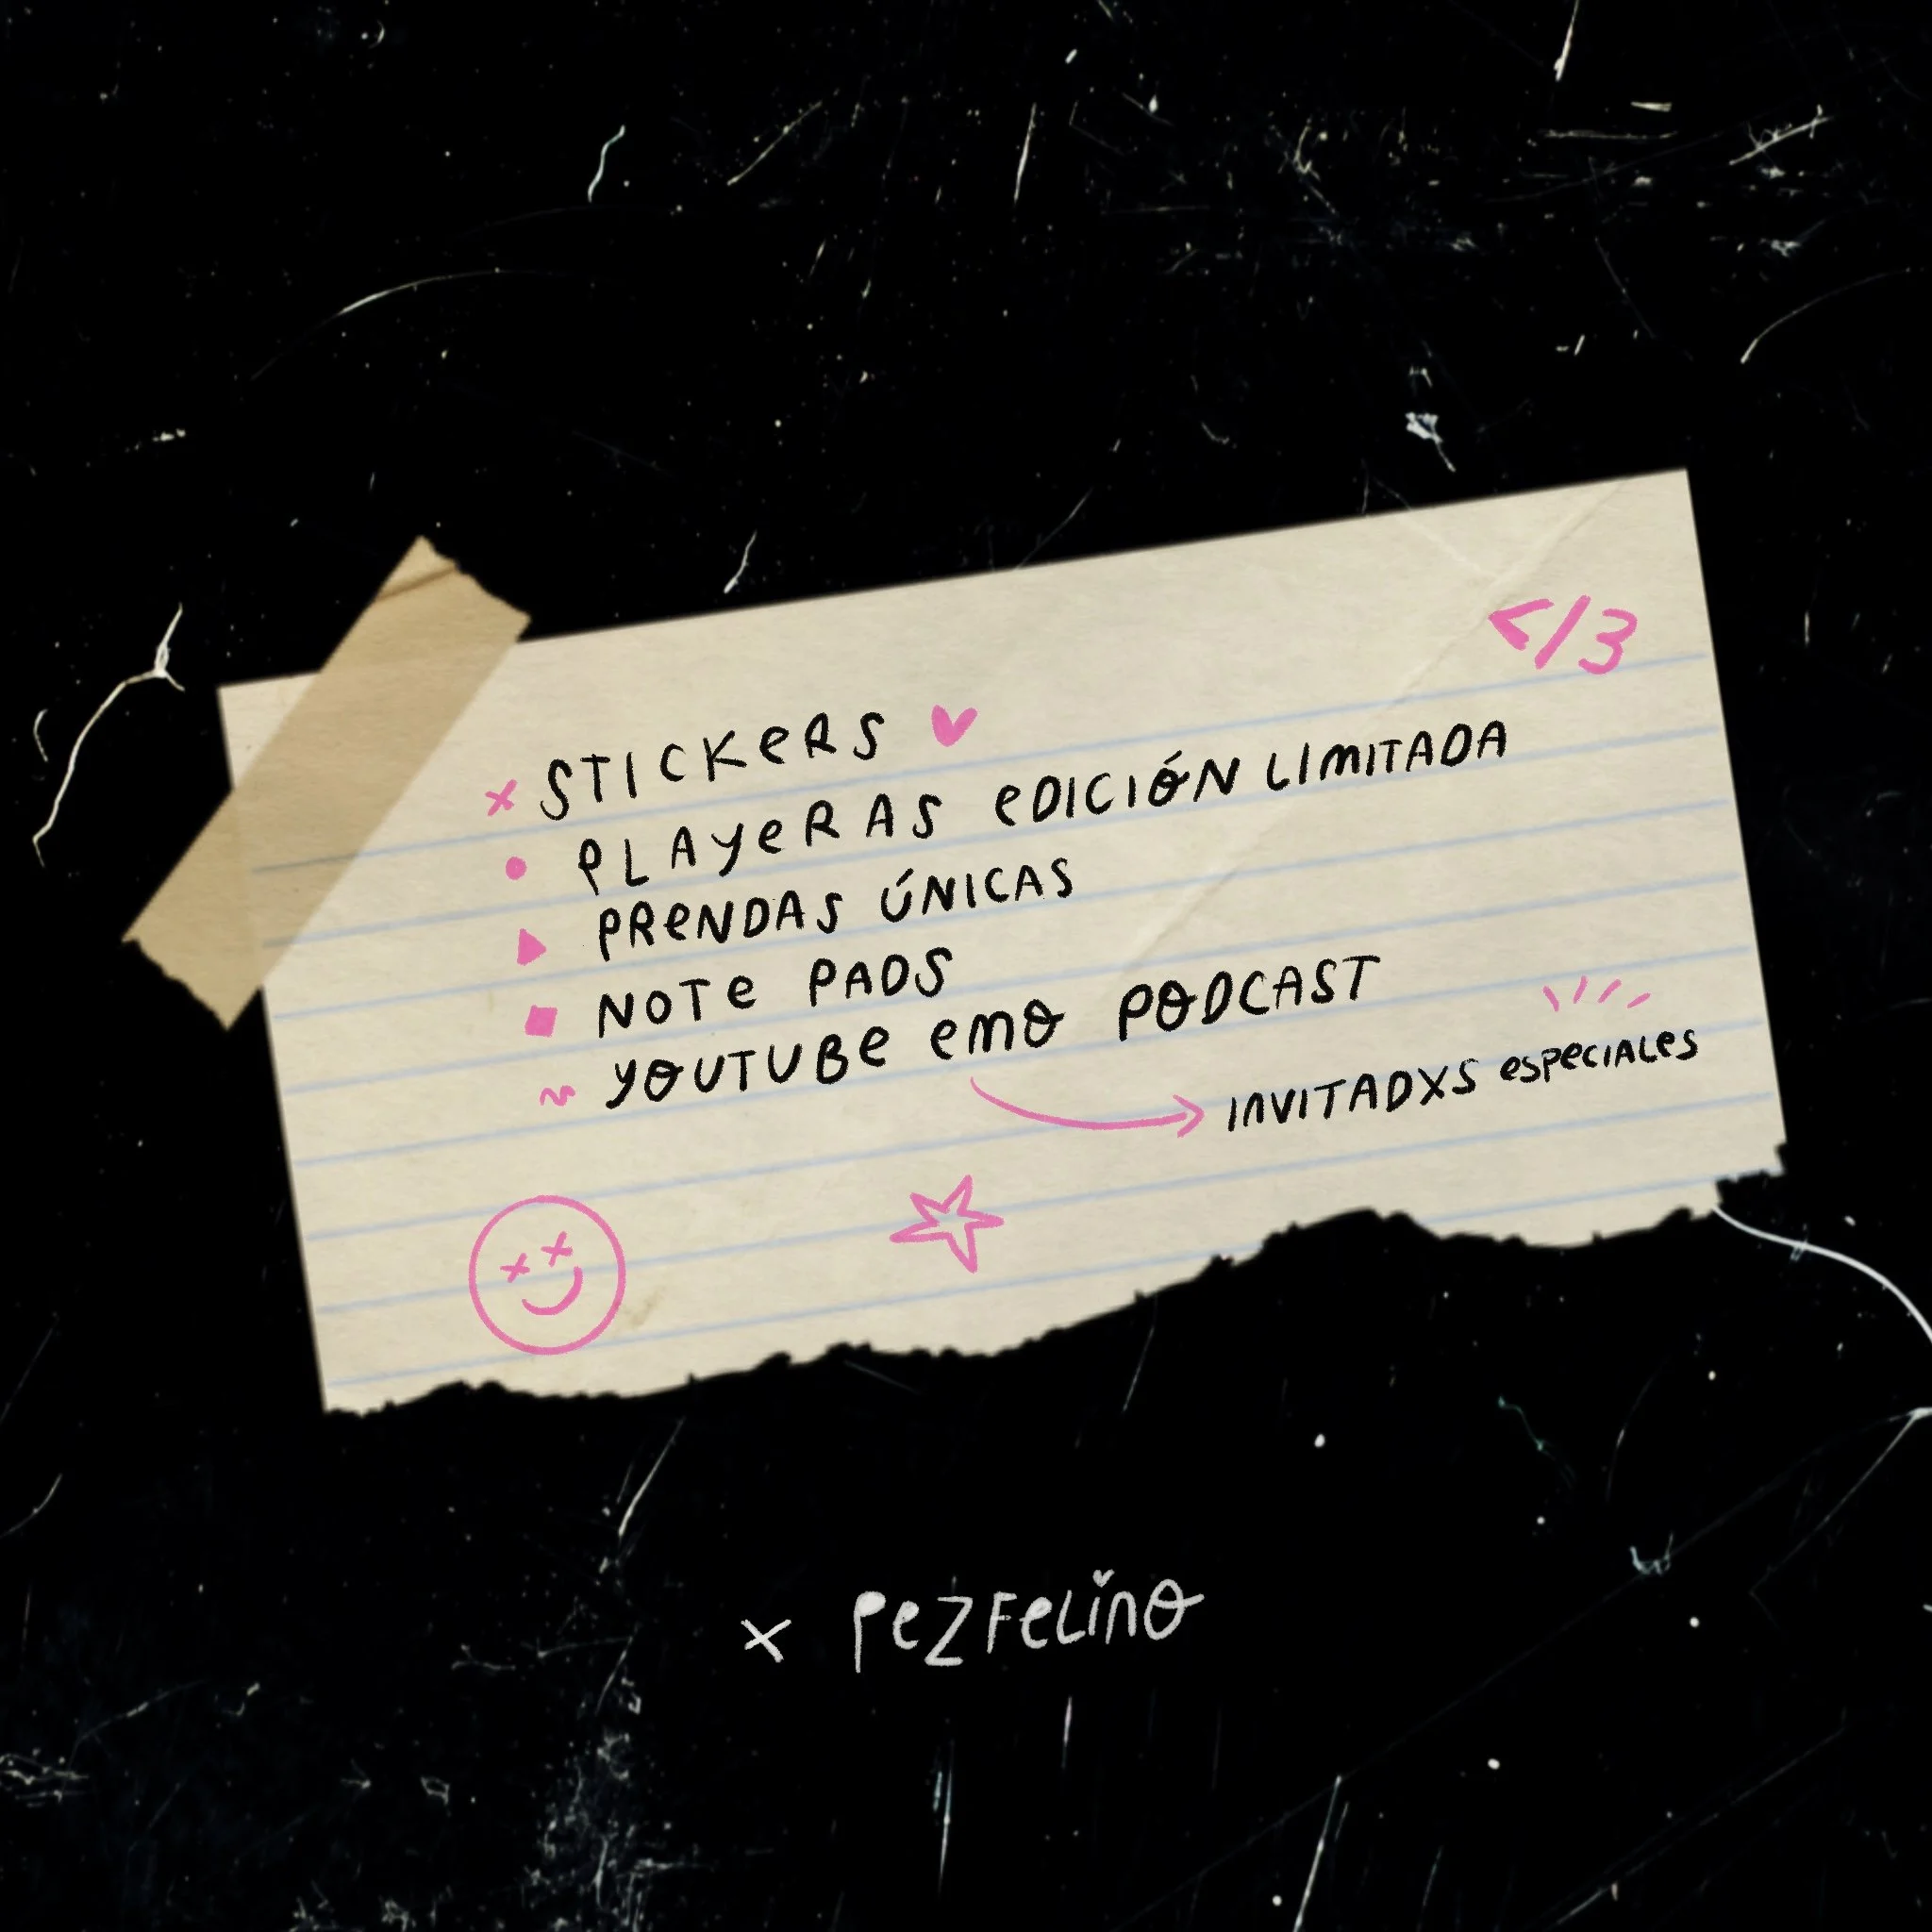 </3
STICKERS
PLAYERAS EDICIÓN LIMITADA
PRENDAS ÚNICAS
NOTE PADS
YOUTUBE EMO PODCAST
INVITADXS ESPECIALES
x PEZFELINO